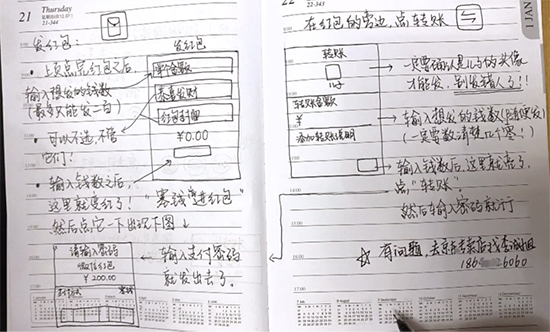 21
Thursday
21-344
发红包:
发红包
· 上页点完红包之后
输入想发的钱数
(最多只能发二百)
单个金额
恭喜发财
红包封面
¥0.00
· 可以不选,不管
它们!
· 输入钱数之后,
这里就变红了!
"塞钱进红包"
然后点它一下出现下图↓
请输入密码
微信红包
¥200.00
支付方式
零钱
← 输入支付密码
就发出去了。
22
22-343
JAN
在红包的旁边,点转账
转账
儿子
转账金额
¥
添加转账说明
一定要确认是儿子的头像
才能发,别发错人了!!
输入想发的钱数(随便发)
(一定要数清楚几个零!)
输入钱数后,这里就亮了。
点"转账"。
然后输入密码就行
☆ 有问题,去京东专卖店找李
186
6060